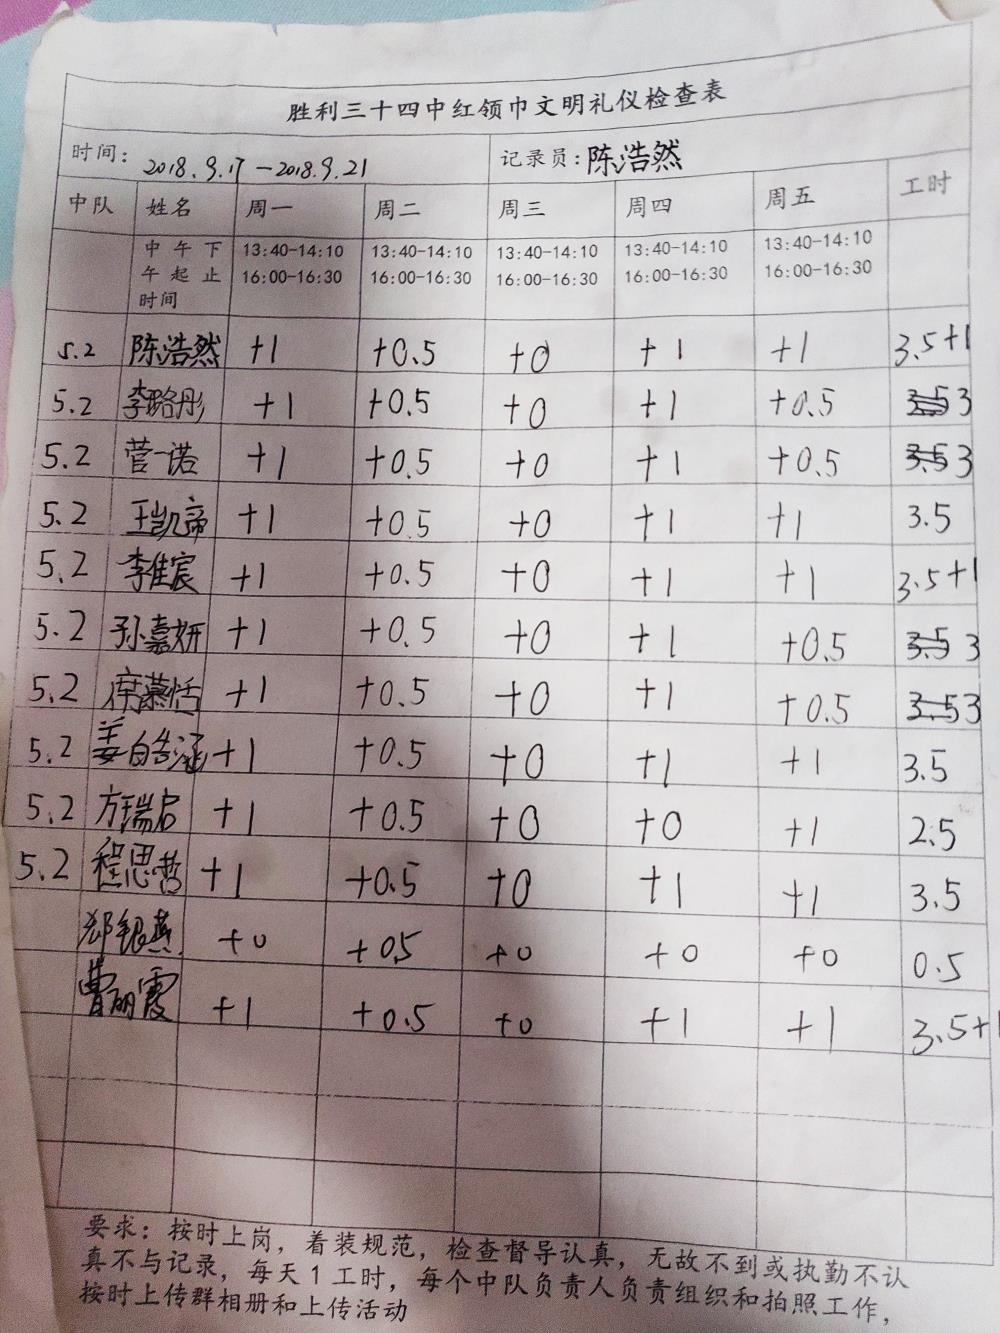 胜利三十四中红领巾文明礼仪检查表
时间: 2018.9.17-2018.9.21 记录员:陈浩然
中队 姓名 周一 周二 周三 周四 周五 工时
中午下 13:40-14:10 13:40-14:10 13:40-14:10 13:40-14:10 13:40-14:10
午起止 16:00-16:30 16:00-16:30 16:00-16:30 16:00-16:30 16:00-16:30
时间
5.2 陈浩然 +1 +0.5 +0 +1 +1 3.5+1
5.2 李璐彤 +1 +0.5 +0 +1 +0.5 3
5.2 菅一诺 +1 +0.5 +0 +1 +0.5 3
5.2 王凯帝 +1 +0.5 +0 +1 +1 3.5
5.2 李佳宸 +1 +0.5 +0 +1 +1 3.5+1
5.2 孙嘉妍 +1 +0.5 +0 +1 +0.5 3
5.2 慕恬 +1 +0.5 +0 +1 +0.5 3
5.2 姜皓涵 +1 +0.5 +0 +1 +1 3.5
5.2 方瑞启 +1 +0.5 +0 +0 +1 2.5
5.2 程思哲 +1 +0.5 +0 +1 +1 3.5
郑银燕 +0 +0.5 +0 +0 +0 0.5
曹丽霞 +1 +0.5 +0 +1 +1 3.5+1
要求:按时上岗,着装规范,检查督导认真,无故不到或执勤不认
真不与记录,每天1工时,每个中队负责人负责组织和拍照工作,
按时上传群相册和上传活动